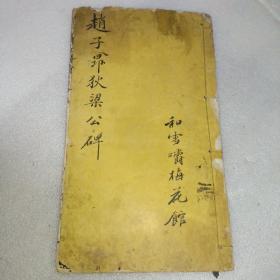 趙子昂狄梁公碑
和雪嚼梅花館